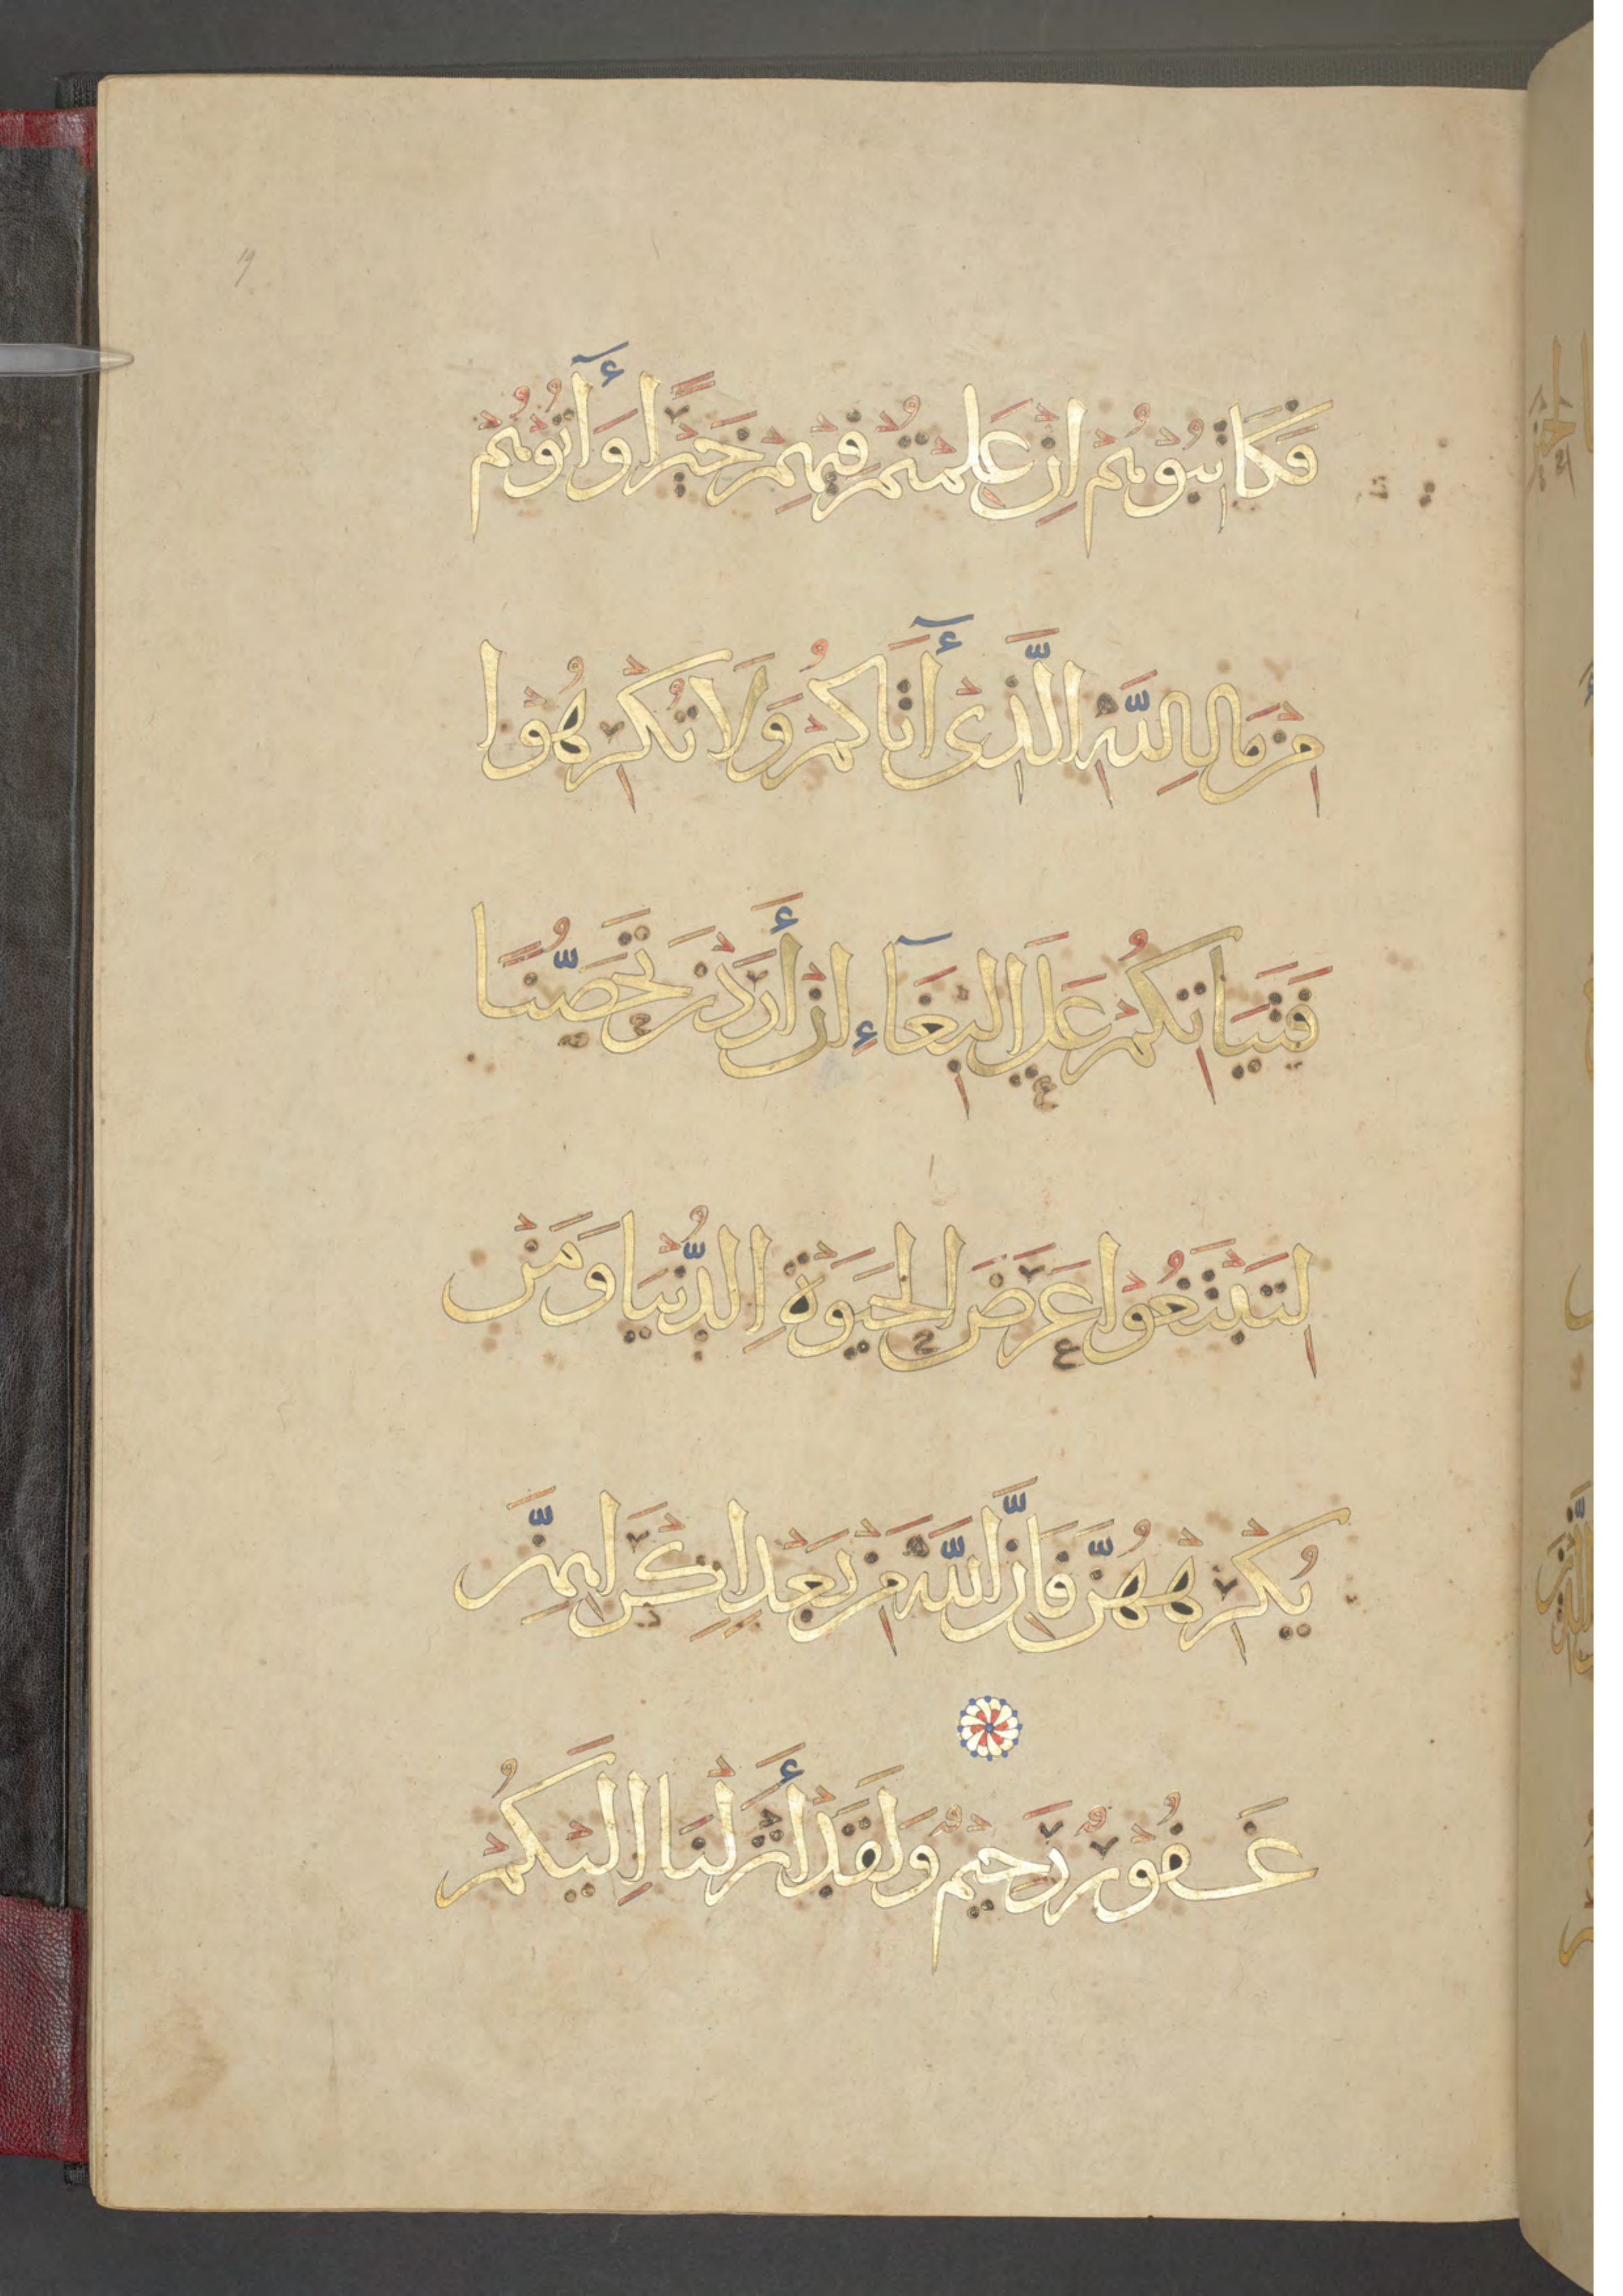 فَكَاتِبُوهُمْ اِنْ عَلِمْتُمْ فِيهِمْ خَيْرًا وَأٓتُوهُمْ
مِنْ مَالِ اللَّهِ الَّذِىْ أٓتَاكُمْ وَلَا تُكْرِهُوْا
فَتَيَاتِكُمْ عَلَى الْبِغَآءِ اِنْ أَرَدْنَ تَحَصُّنًا
لِتَبْتَغُوْا عَرَضَ الْحَيَوةِ الدُّنْيَا وَمَنْ
يُكْرِهْهُنَّ فَاِنَّ اللَّهَ مِنْ بَعْدِ اِكْرَاهِهِنَّ
غَفُوْرٌ رَحِيْمٌ وَلَقَدْ أَنْزَلْنَا اِلَيْكُمْ